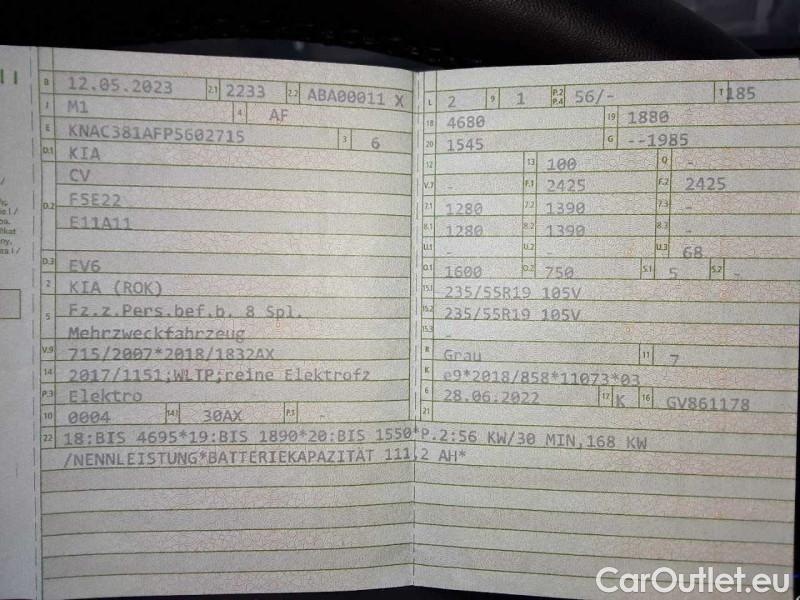 II
B 12.05.2023 2.1 2233 2.2 ABA00011 X
J M1 4 AF
E KNAC381AFP5602715 3 6
D.1 KIA
CV
D.2 F5E22
E11A11
D.3 EV6
2 KIA (ROK)
5 Fz.z.Pers.bef.b. 8 Spl.
Mehrzweckfahrzeug
V.9 715/2007*2018/1832AX
14 2017/1151;WLTP;reine Elektrofz
P.3 Elektro
10 0004 14.1 30AX P.1 -
L 2 9 1 P.2 P.4 56/- T 185
18 4680 19 1880
20 1545 G --1985
12 - 13 100 Q -
V.7 - F.1 2425 F.2 2425
7.1 1280 7.2 1390 7.3 -
8.1 1280 8.2 1390 8.3 -
U.1 - U.2 - U.3 68
O.1 1600 O.2 750 S.1 5 S.2 -
15.1 235/55R19 105V
15.2 235/55R19 105V
15.3 -
R Grau 11 7
K e9*2018/858*11073*03
6 28.06.2022 17 K 16 GV861178
21
22 18:BIS 4695*19:BIS 1890*20:BIS 1550*P.2:56 KW/30 MIN,168 KW
/NENNLEISTUNG*BATTERIEKAPAZITÄT 111,2 AH*
CarOutlet.eu